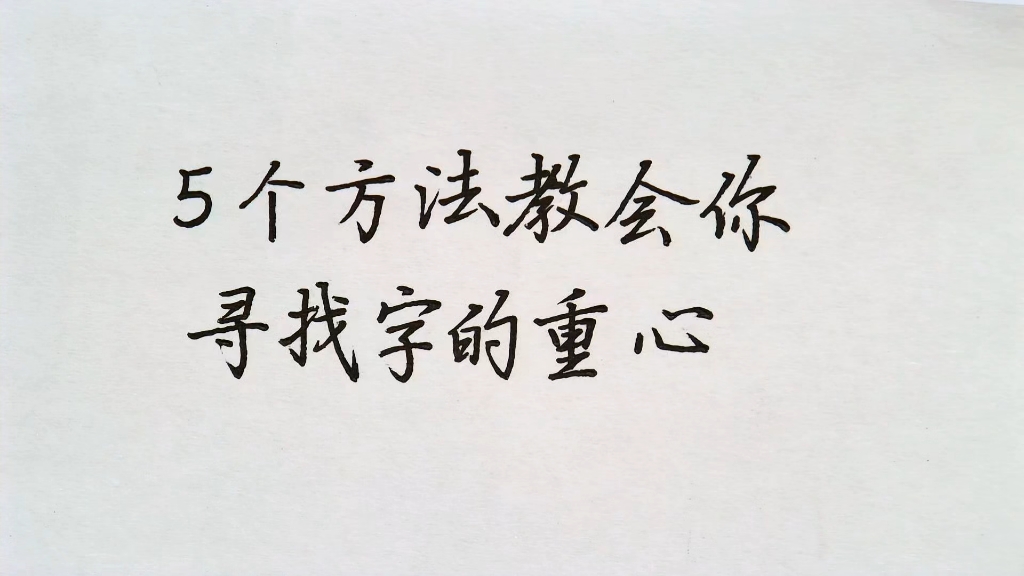 5个方法教会你
寻找字的重心